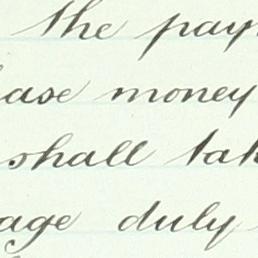 the pay
ase money
shall tak
age duly